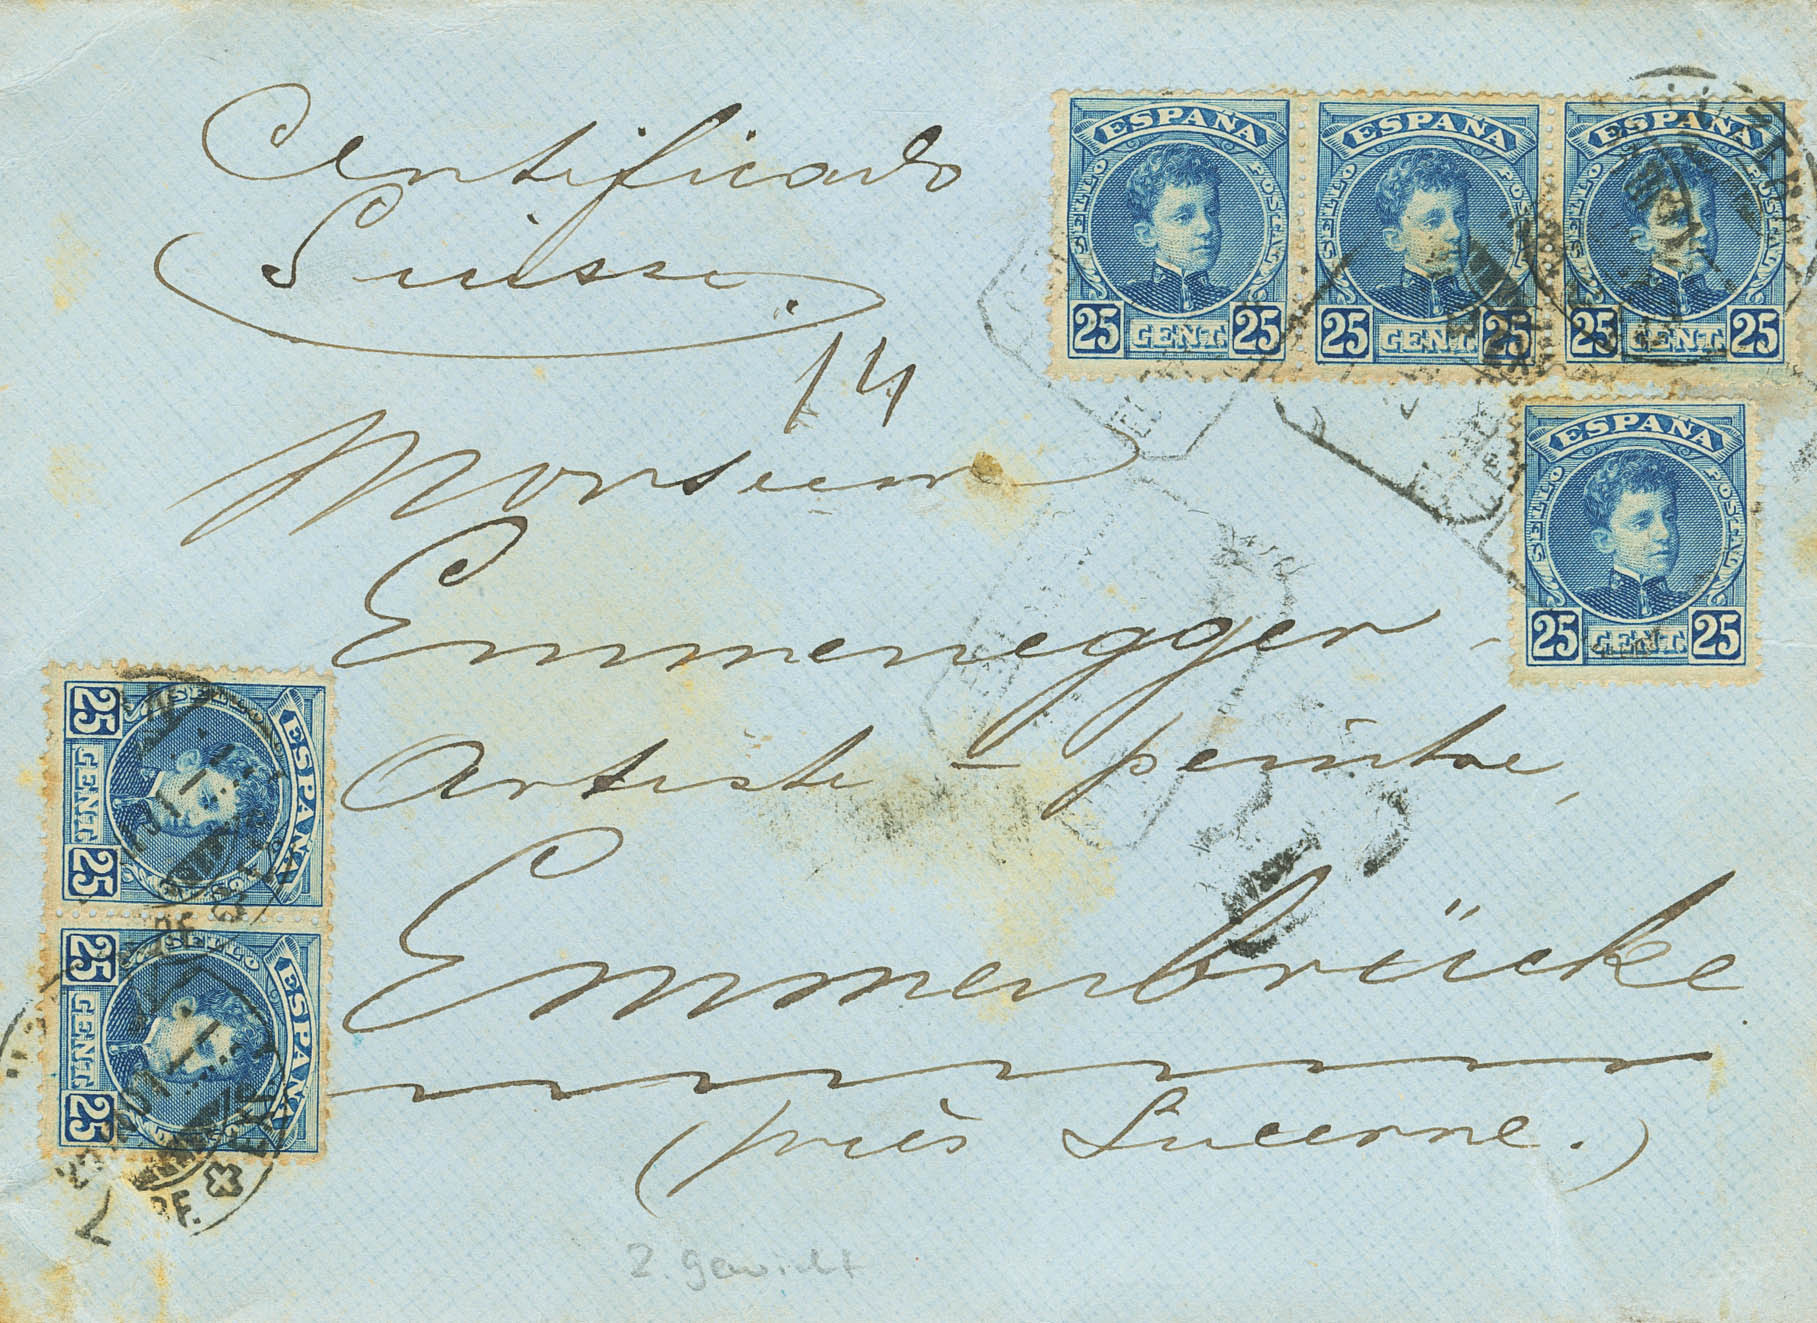 Certificado
Suisse.
14
Monsieur
Emmenegger,
Artiste-peintre,
Emmenbrücke
(près Lucerne.)
2. Gewicht
ESPAÑA
SELLO POSTAL
25 CENT. 25
ESPAÑA
SELLO POSTAL
25 CENT. 25
ESPAÑA
SELLO POSTAL
25 CENT. 25
ESPAÑA
SELLO POSTAL
25 CENT. 25
ESPAÑA
SELLO
25 CENT. 25
ESPAÑA
SELLO
25 CENT. 25